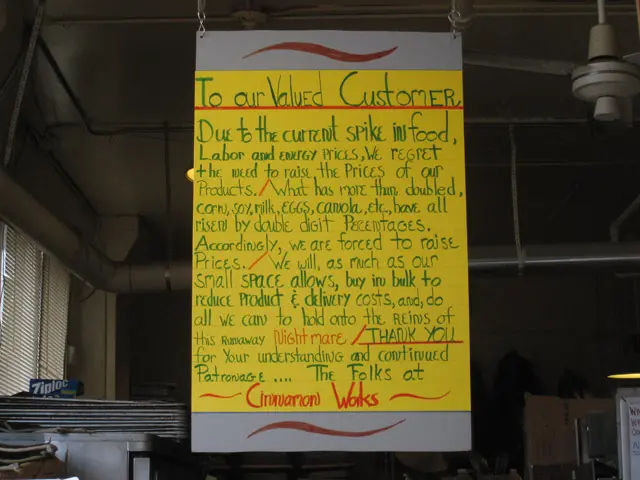 To our Valued Customer
Due to the current spike in food,
Labor and energy prices, We regret
the need to raise the Prices of our
Products. / What has more than doubled,
corn, soy, milk, EGGS, canola, etc., have all
risen by double digit Pecentages.
Accordingly, we are forced to raise
Prices. / We will, as much as our
small space allows, buy in bulk to
reduce Product & delivery costs, and, do
all we can to hold onto the reins of
this runaway Nightmare / THANK YOU
for Your understanding and continued
Patronage .... The Folks at
~ Cinnamon Works ~
Ziploc